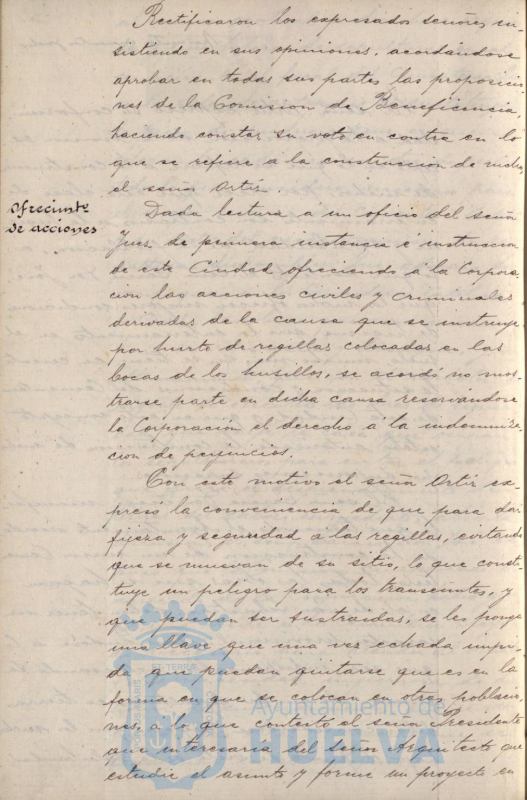 Rectificaron los expresados señores in-
sistiendo en sus opiniones, acordándose
aprobar en todas sus partes las proposicio-
nes de la Comision de Beneficencia,
haciendo constar su voto en contra en lo
que se refiere a la construccion de nichos,
el señor Ortiz.
Ofrecimto
de acciones
Dada lectura a un oficio del señor
Juez de primera instancia e instruccion
de esta Ciudad ofreciendo á la Corpora-
cion las acciones civiles y criminales
derivadas de la causa que se instruye
por hurto de regillas colocadas en las
bocas de los husillos, se acordó no mos-
trarse parte en dicha causa reservándose
la Corporacion el derecho á la indemniza-
cion de perjuicios.
Con este motivo el señor Ortiz ex-
presó la conveniencia de que para dar
fijeza y seguridad a las regillas, evitando
que se muevan de su sitio, lo que consti-
tuye un peligro para los transeuntes, y
que puedan ser sustraidas, se les ponga
una llave que una vez echada impi-
da que puedan quitarse que es en la
forma en que se colocan en otras poblacio-
nes, á lo que contestó el señor Presidente
que interesaria del señor Arquitecto que
estudie el asunto y forme un proyecto en
Ayuntamiento de
HUELVA